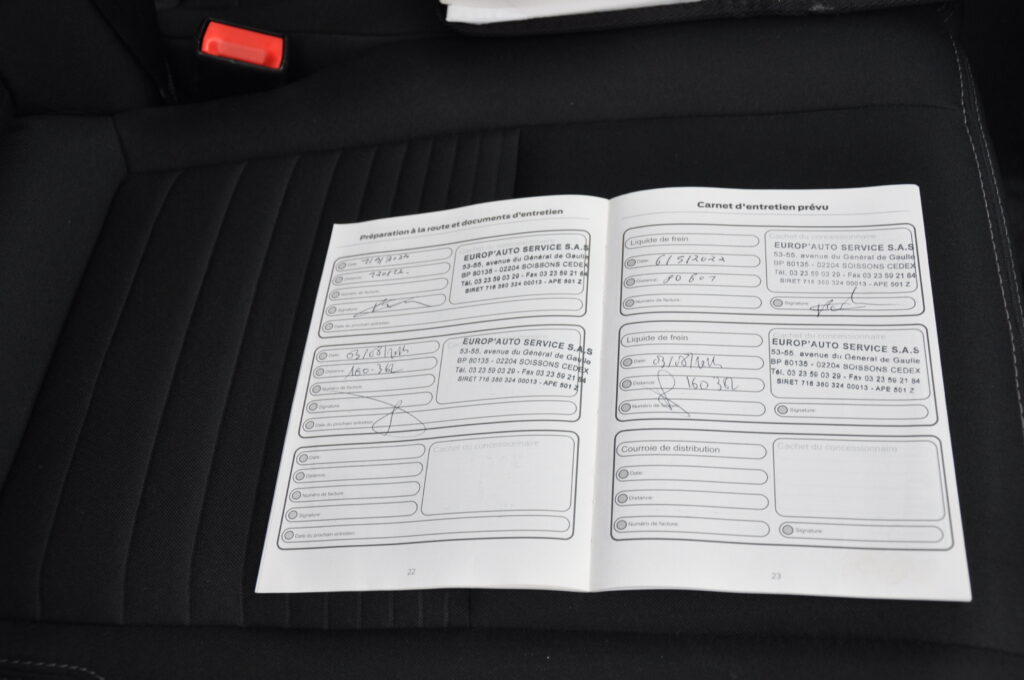 Préparation à la route et documents d'entretien
Date:
Distance:
Numéro de facture:
Signature:
Date du prochain entretien:
Cachet du concessionnaire
EUROP'AUTO SERVICE S.A.S
53-55, avenue du Général de Gaulle
BP 80135 - 02204 SOISSONS CEDEX
Tél. 03 23 59 03 29 - Fax 03 23 59 21 84
SIRET 716 360 324 00013 - APE 501 Z
Date: 03/08/2024
Distance: 160 362
Numéro de facture:
Signature:
Date du prochain entretien:
EUROP'AUTO SERVICE S.A.S
53-55, avenue du Général de Gaulle
BP 80135 - 02204 SOISSONS CEDEX
Tél. 03 23 59 03 29 - Fax 03 23 59 21 84
SIRET 716 360 324 00013 - APE 501 Z
Date:
Distance:
Numéro de facture:
Signature:
Date du prochain entretien:
Cachet du concessionnaire
22
Carnet d'entretien prévu
Liquide de frein
Date: 6/5/2022
Distance: 80 607
Numéro de facture:
Cachet du concessionnaire
EUROP'AUTO SERVICE S.A.S
53-55, avenue du Général de Gaulle
BP 80135 - 02204 SOISSONS CEDEX
Tél. 03 23 59 03 29 - Fax 03 23 59 21 84
SIRET 716 360 324 00013 - APE 501 Z
Signature:
Liquide de frein
Date: 03/08/2024
Distance: 160 362
Numéro de facture:
Cachet du concessionnaire
EUROP'AUTO SERVICE S.A.S
53-55, avenue du Général de Gaulle
BP 80135 - 02204 SOISSONS CEDEX
Tél. 03 23 59 03 29 - Fax 03 23 59 21 84
SIRET 716 360 324 00013 - APE 501 Z
Signature:
Courroie de distribution
Date:
Distance:
Numéro de facture:
Cachet du concessionnaire
Signature:
23